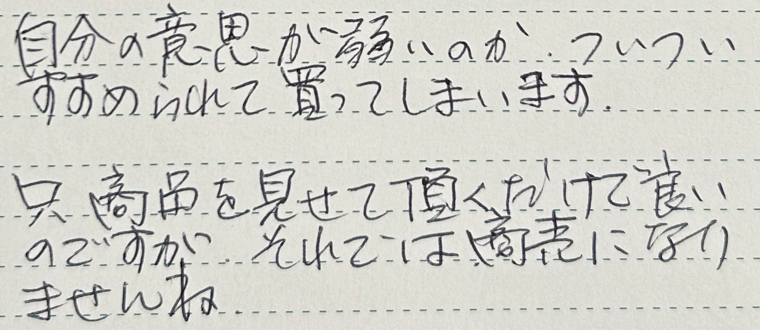 自分の意思が弱いのか、ついつい
すすめられて買ってしまいます。
只、商品を見せて頂くだけで良い
のですが、それでは商売になり
ませんね。